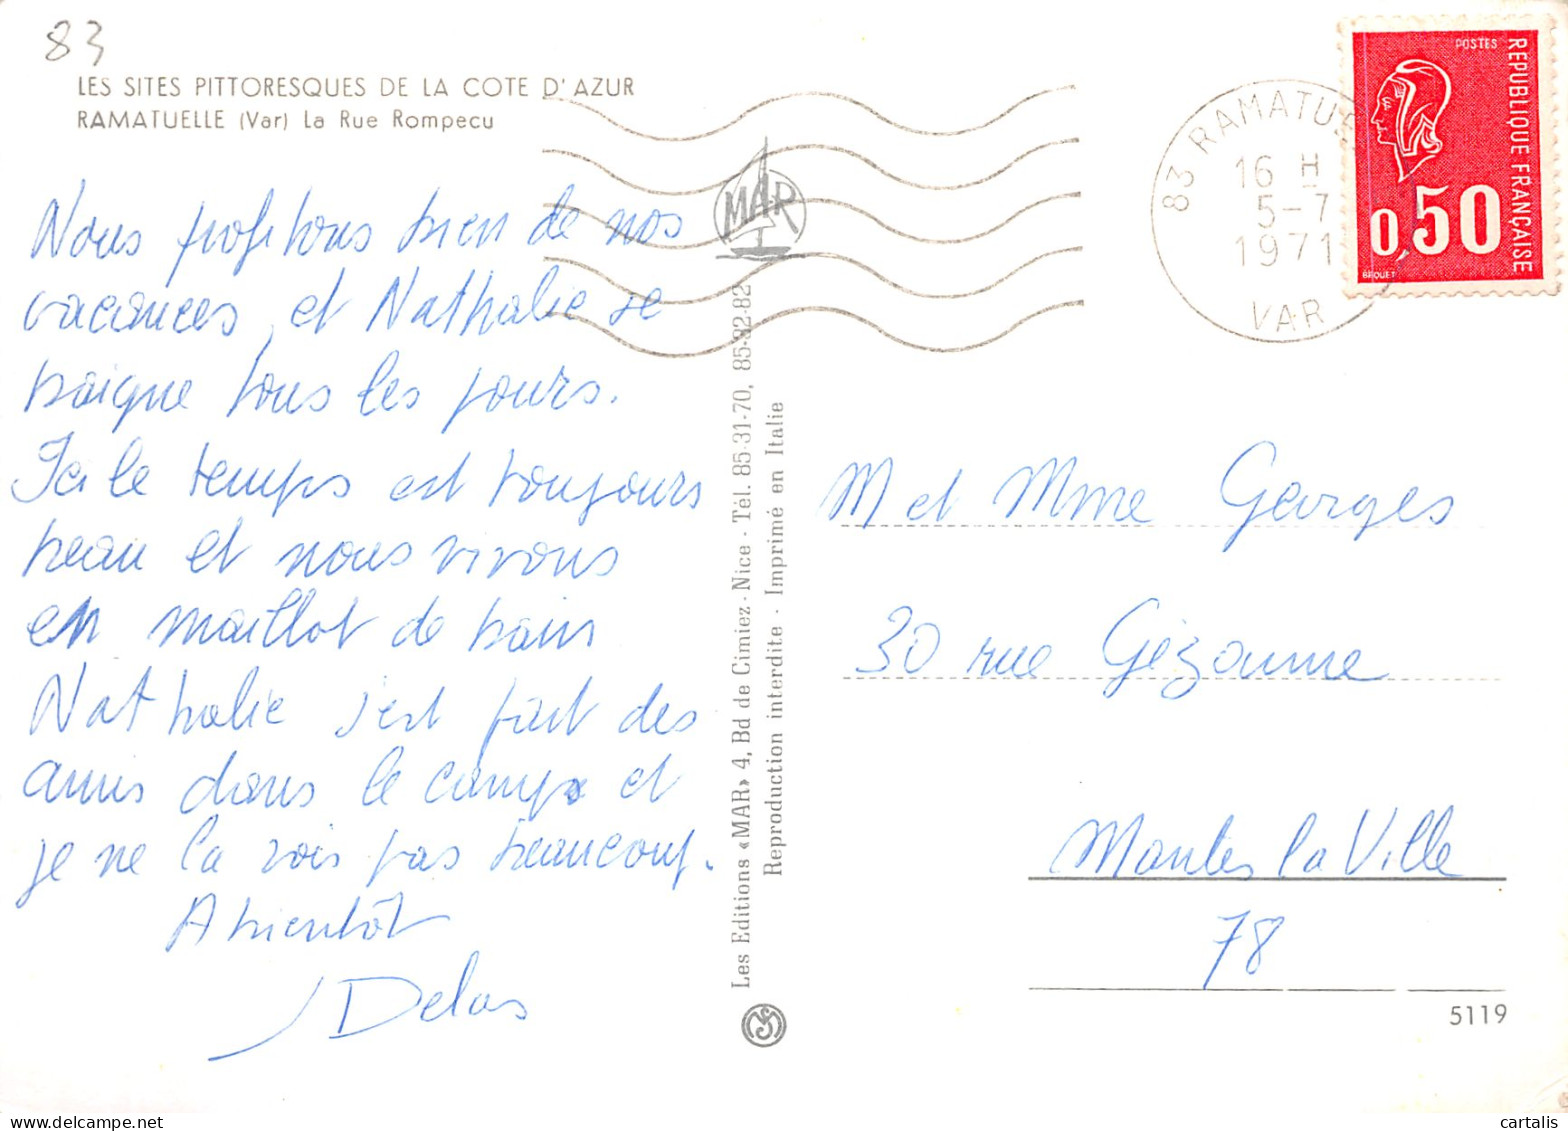 83
LES SITES PITTORESQUES DE LA COTE D'AZUR
RAMATUELLE (Var) La Rue Rompecu
Nous profitons bien de nos
vacances, et Nathalie se
baigne tous les jours.
Ici le temps est toujours
beau et nous vivons
en maillot de bain
Nathalie s'est fait des
amis dans le camp et
je ne la vois pas beaucoup.
A bientôt
JDelas
MAR
Les Editions «MAR» 4, Bd de Cimiez - Nice - Tél. 85-31-70, 85-32-82
Reproduction interdite - Imprimé en Italie
83 RAMATUE
16 H
5-7
1971
VAR
POSTES
REPUBLIQUE FRANÇAISE
0,50
BEQUET
M et Mme Georges
30 rue Cézanne
Mantes la Ville
78
5119
cartalis